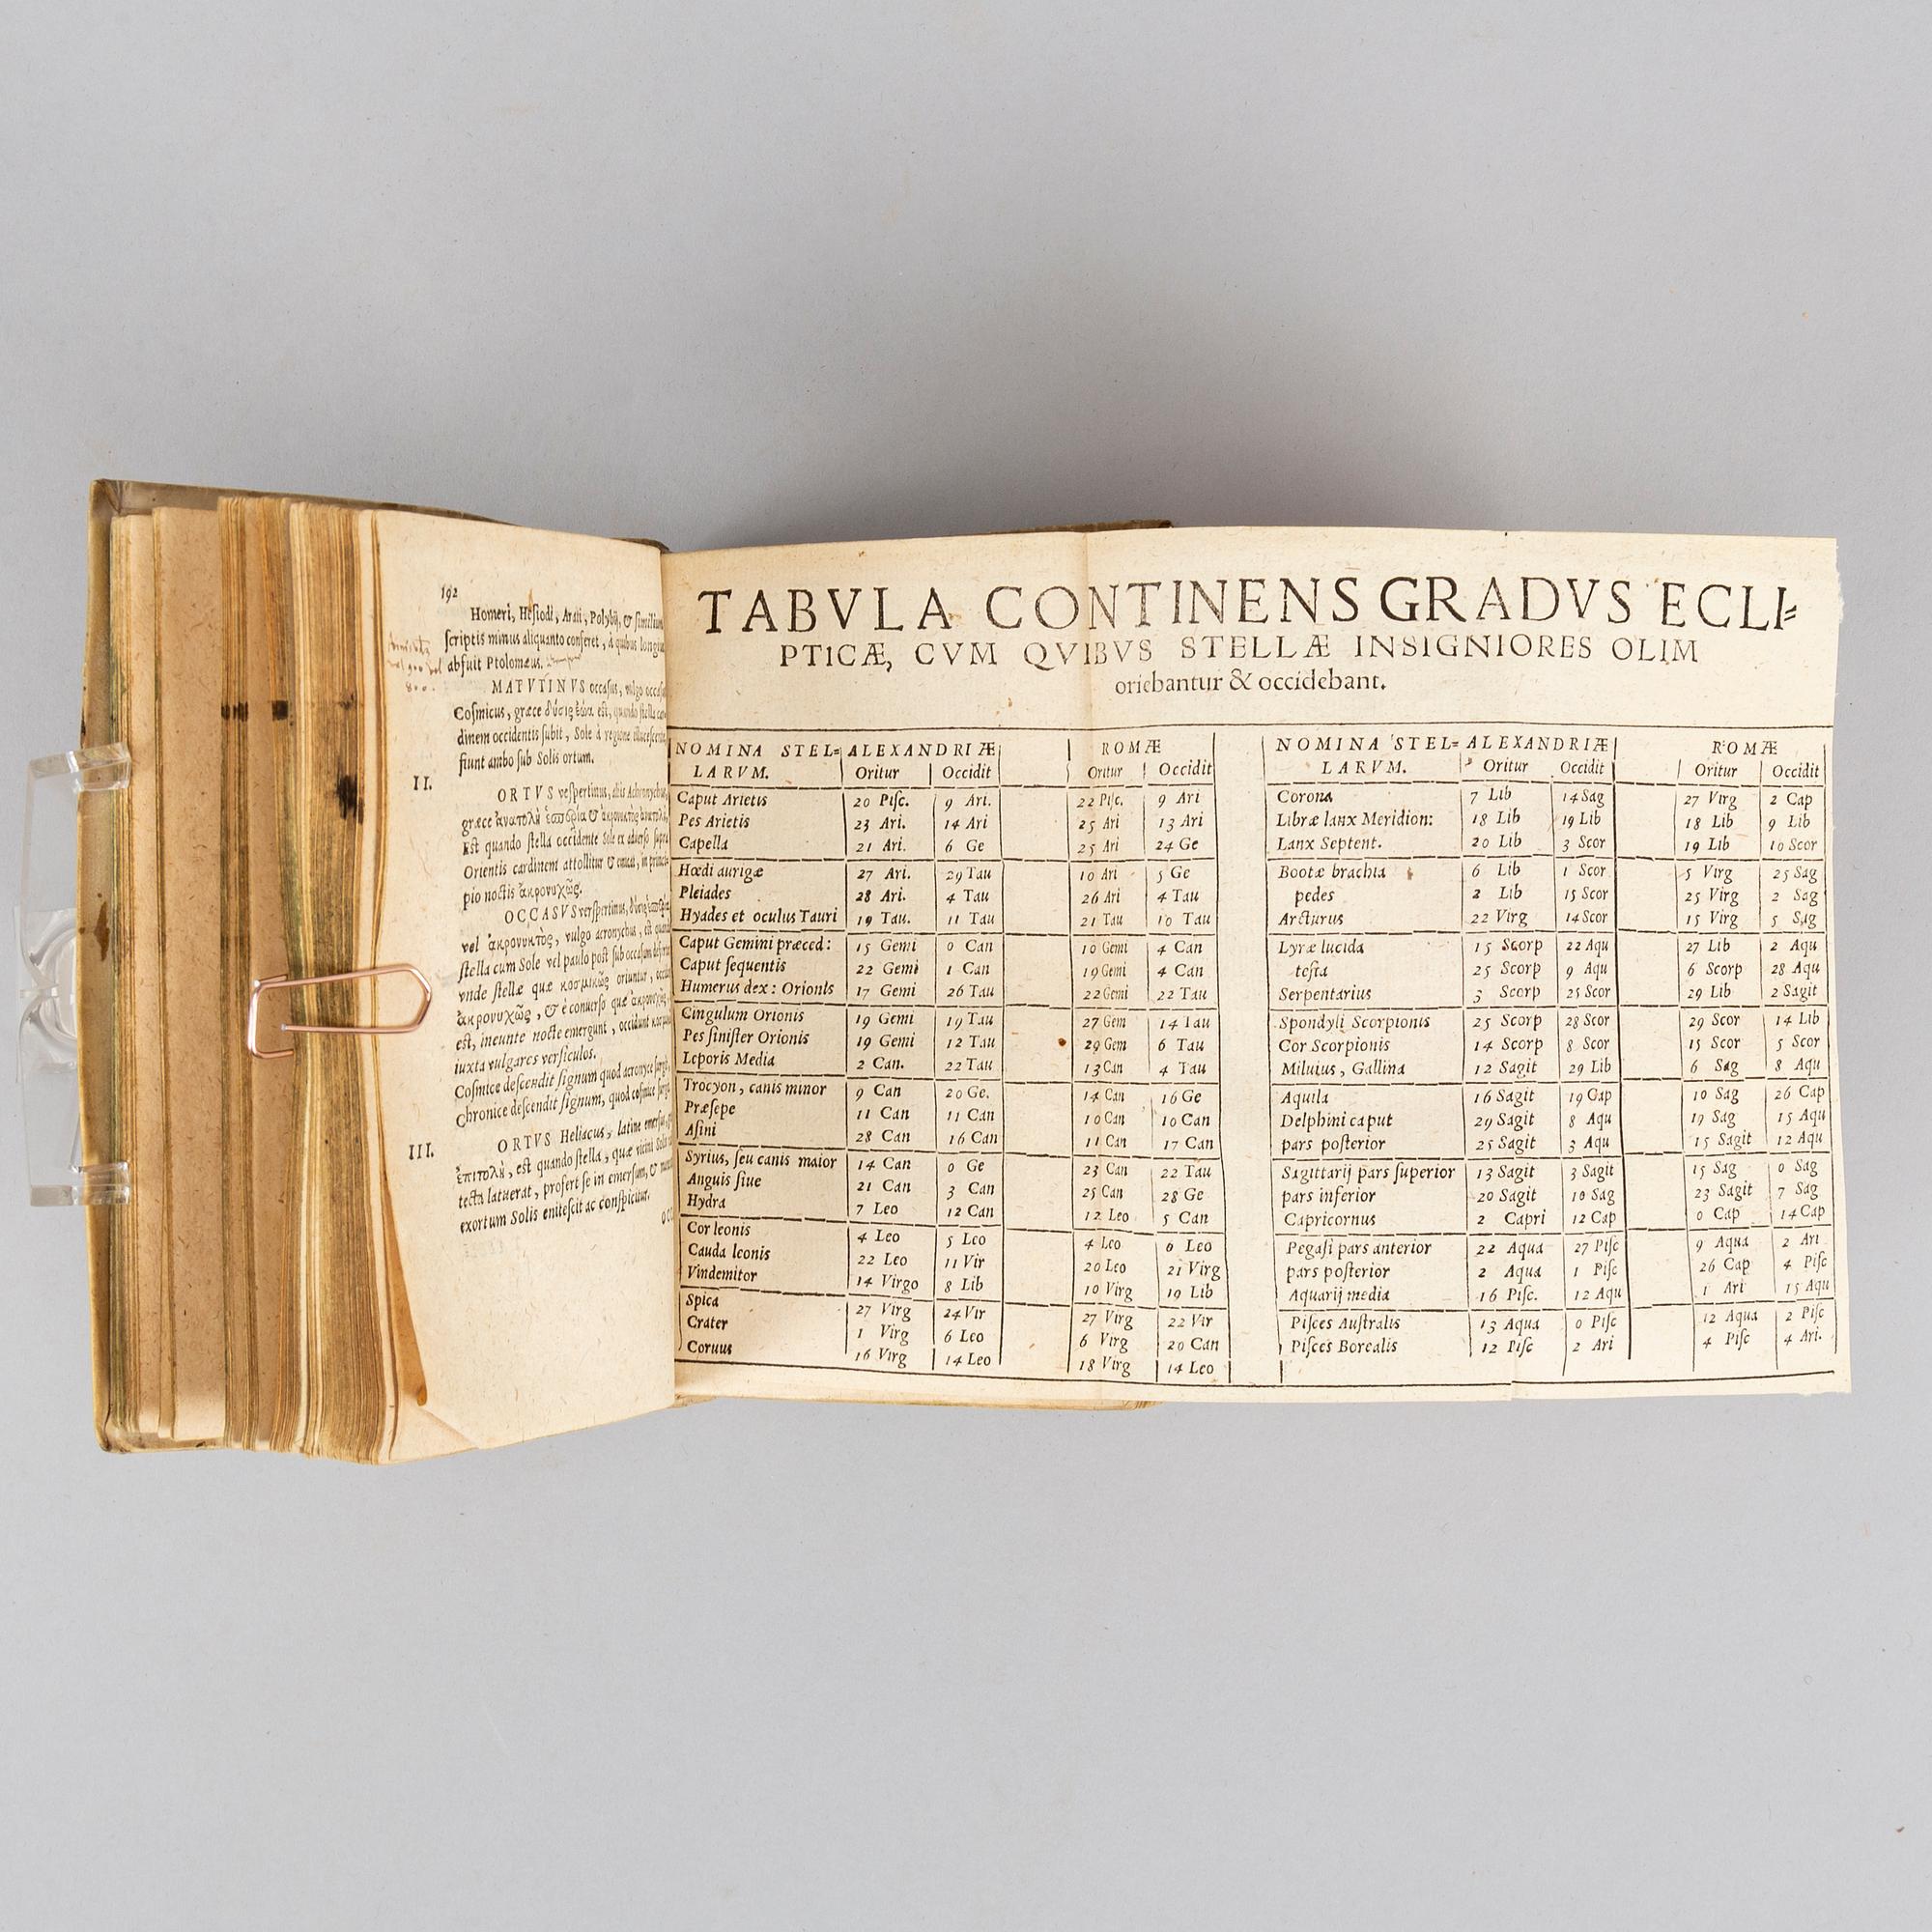 192
Homeri, Hesiodi, Arati, Polybij, & similium
scriptis minus aliquanto conferet, à quibus longiùs
absuit Ptolomæus.
MATVTINVS occasus, vulgo occasus
Cosmicus, græce δύσις ἑώα est, quando stella car-
dinem occidentis subit, Sole à regione
fiunt ambo sub Solis ortum.
II.
ORTVS vespertinus, aliis Achronychus,
græce ἀνατολὴ ἑσπερία &
Est quando stella occidente Sole ex adverso supra
Orientis cardinem attollitur & emicat, in princi-
pio noctis ἀκρονυχῶς.
OCCASVS verspertinus,
vel ἀκρονυκτὸς, vulgo acronychus, est quando
stella cum Sole vel paulo post sub occasum
vnde stellæ quæ κοσμικῶς oriuntur,
ἀκρονυχῶς, & è conuerso quæ
est, ineunte nocte emergunt, occidunt
iuxta vulgares versiculos.
Cosmice descendit signum quod acronyce surgit,
Chronice descendit signum, quod cosmice surgit.
III.
ORTVS Heliacus, latine emersus,
ἐπιτολὴ, est quando stella, quæ vicini Solis
tecta latuerat, profert se in emersum, &
exortum Solis enitescit ac conspicitur.
TABVLA CONTINENS GRADVS ECLI=
PTICÆ, CVM QVIBVS STELLÆ INSIGNIORES OLIM
oriebantur & occidebant.
NOMINA STEL= ALEXANDRIÆ ROMÆ
LARVM. Oritur Occidit Oritur Occidit
Caput Arietis 20 Pisc. 9 Ari. 22 Pisc. 9 Ari
Pes Arietis 23 Ari. 14 Ari 25 Ari 13 Ari
Capella 21 Ari. 6 Ge 25 Ari 24 Ge
Hœdi aurigæ 27 Ari. 29 Tau 10 Ari 5 Ge
Pleiades 28 Ari. 4 Tau 26 Ari 4 Tau
Hyades et oculus Tauri 19 Tau. 11 Tau 21 Tau 10 Tau
Caput Gemini præced: 15 Gemi 0 Can 10 Gemi 4 Can
Caput sequentis 22 Gemi 1 Can 19 Gemi 4 Can
Humerus dex: Orionis 17 Gemi 26 Tau 22 Gemi 22 Tau
Cingulum Orionis 19 Gemi 19 Tau 27 Gem 14 Tau
Pes sinister Orionis 19 Gemi 12 Tau 29 Gem 6 Tau
Leporis Media 2 Can. 22 Tau 13 Can 4 Tau
Trocyon, canis minor 9 Can 20 Ge. 14 Can 16 Ge
Præsepe 11 Can 11 Can 10 Can 10 Can
Asini 28 Can 16 Can 11 Can 17 Can
Syrius, seu canis maior 14 Can 0 Ge 23 Can 22 Tau
Anguis siue 21 Can 3 Can 25 Can 28 Ge
Hydra 7 Leo 12 Can 12 Leo 5 Can
Cor leonis 4 Leo 5 Leo 4 Leo 6 Leo
Cauda leonis 22 Leo 11 Vir 20 Leo 21 Virg
Vindemitor 14 Virgo 8 Lib 10 Virg 19 Lib
Spica 27 Virg 24 Vir 27 Virg 22 Vir
Crater 1 Virg 6 Leo 6 Virg 20 Can
Coruus 16 Virg 14 Leo 18 Virg 14 Leo
NOMINA STEL= ALEXANDRIÆ ROMÆ
LARVM. Oritur Occidit Oritur Occidit
Corona 7 Lib 14 Sag 27 Virg 2 Cap
Libræ lanx Meridion: 18 Lib 19 Lib 18 Lib 9 Lib
Lanx Septent. 20 Lib 3 Scor 19 Lib 10 Scor
Bootæ brachia 6 Lib 1 Scor 5 Virg 25 Sag
pedes 2 Lib 15 Scor 25 Virg 2 Sag
Arcturus 22 Virg 14 Scor 15 Virg 5 Sag
Lyræ lucida 15 Scorp 22 Aqu 27 Lib 2 Aqu
testa 25 Scorp 9 Aqu 6 Scorp 28 Aqu
Serpentarius 3 Scorp 25 Scor 29 Lib 2 Sagit
Spondyli Scorpionis 25 Scorp 28 Scor 29 Scor 14 Lib
Cor Scorpionis 14 Scorp 8 Scor 15 Scor 5 Scor
Miluius, Gallina 12 Sagit 29 Lib 6 Sag 8 Aqu
Aquila 16 Sagit 19 Cap 10 Sag 26 Cap
Delphini caput 29 Sagit 8 Aqu 19 Sag 15 Aqu
pars posterior 25 Sagit 3 Aqu 15 Sagit 12 Aqu
Sagittarij pars superior 13 Sagit 3 Sagit 15 Sag 0 Sag
pars inferior 20 Sagit 10 Sag 23 Sagit 7 Sag
Capricornus 2 Capri 12 Cap 0 Cap 14 Cap
Pegasi pars anterior 22 Aqua 27 Pisc 9 Aqua 2 Ari
pars posterior 2 Aqua 1 Pisc 26 Cap 4 Pisc
Aquarij media 16 Pisc. 12 Aqu 1 Ari 15 Aqu
Pisces Australis 13 Aqua 0 Pisc 12 Aqua 2 Pisc
Pisces Borealis 12 Pisc 2 Ari 4 Pisc 4 Ari.